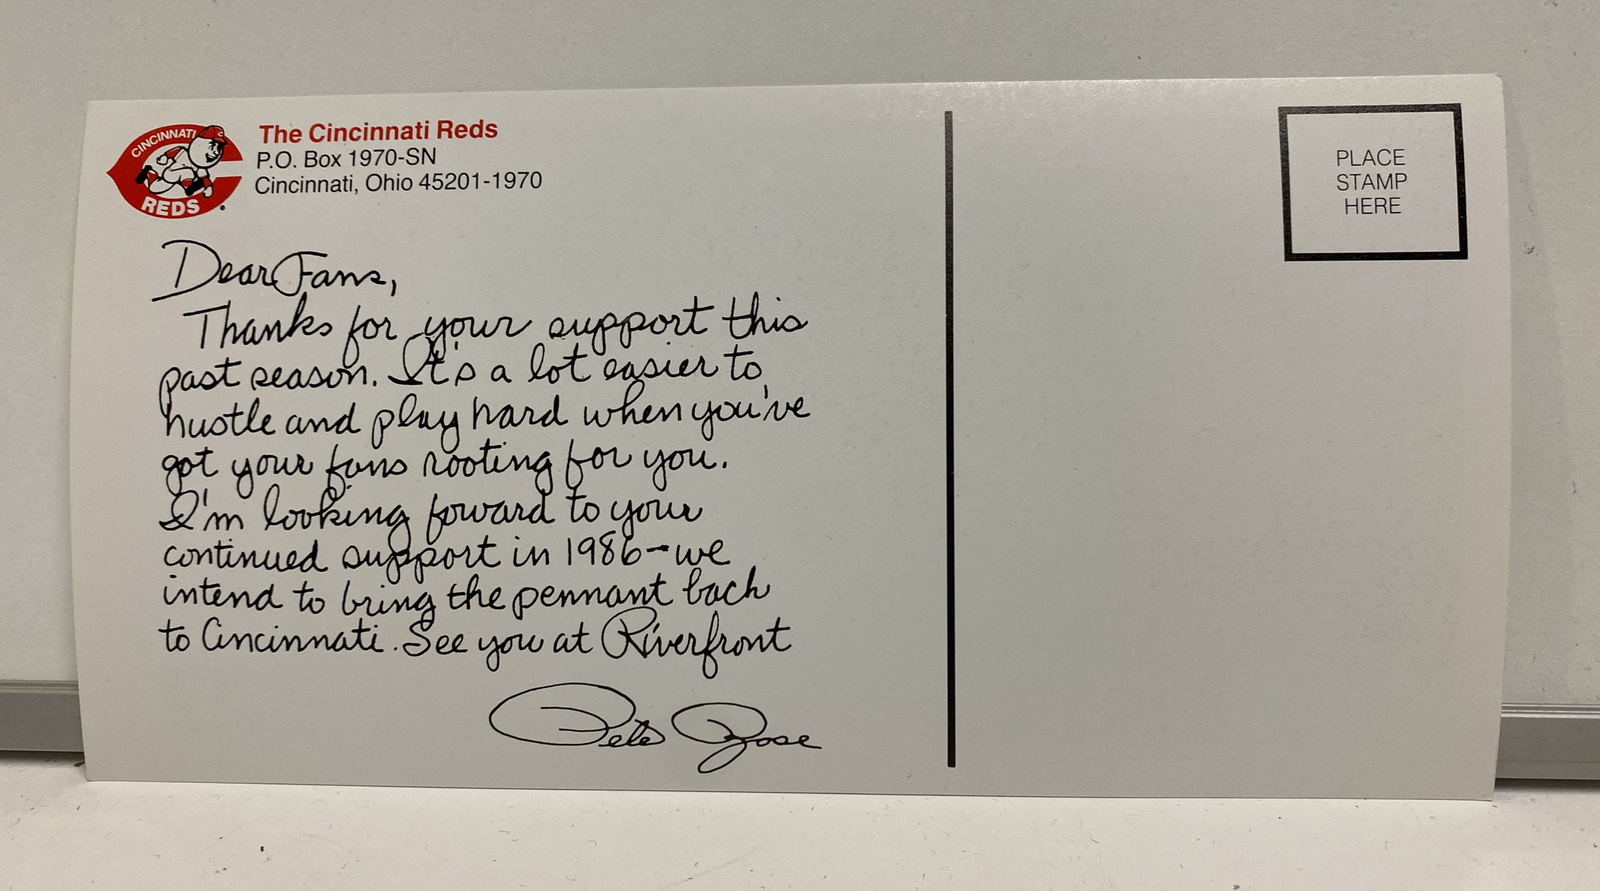 CINCINNATI
REDS
The Cincinnati Reds
P.O. Box 1970-SN
Cincinnati, Ohio 45201-1970
Dear Fans,
Thanks for your support this
past season. It's a lot easier to
hustle and play hard when you've
got your fans rooting for you.
I'm looking foward to your
continued support in 1986-we
intend to bring the pennant back
to Cincinnati. See you at Riverfront
Pete Rose
PLACE
STAMP
HERE